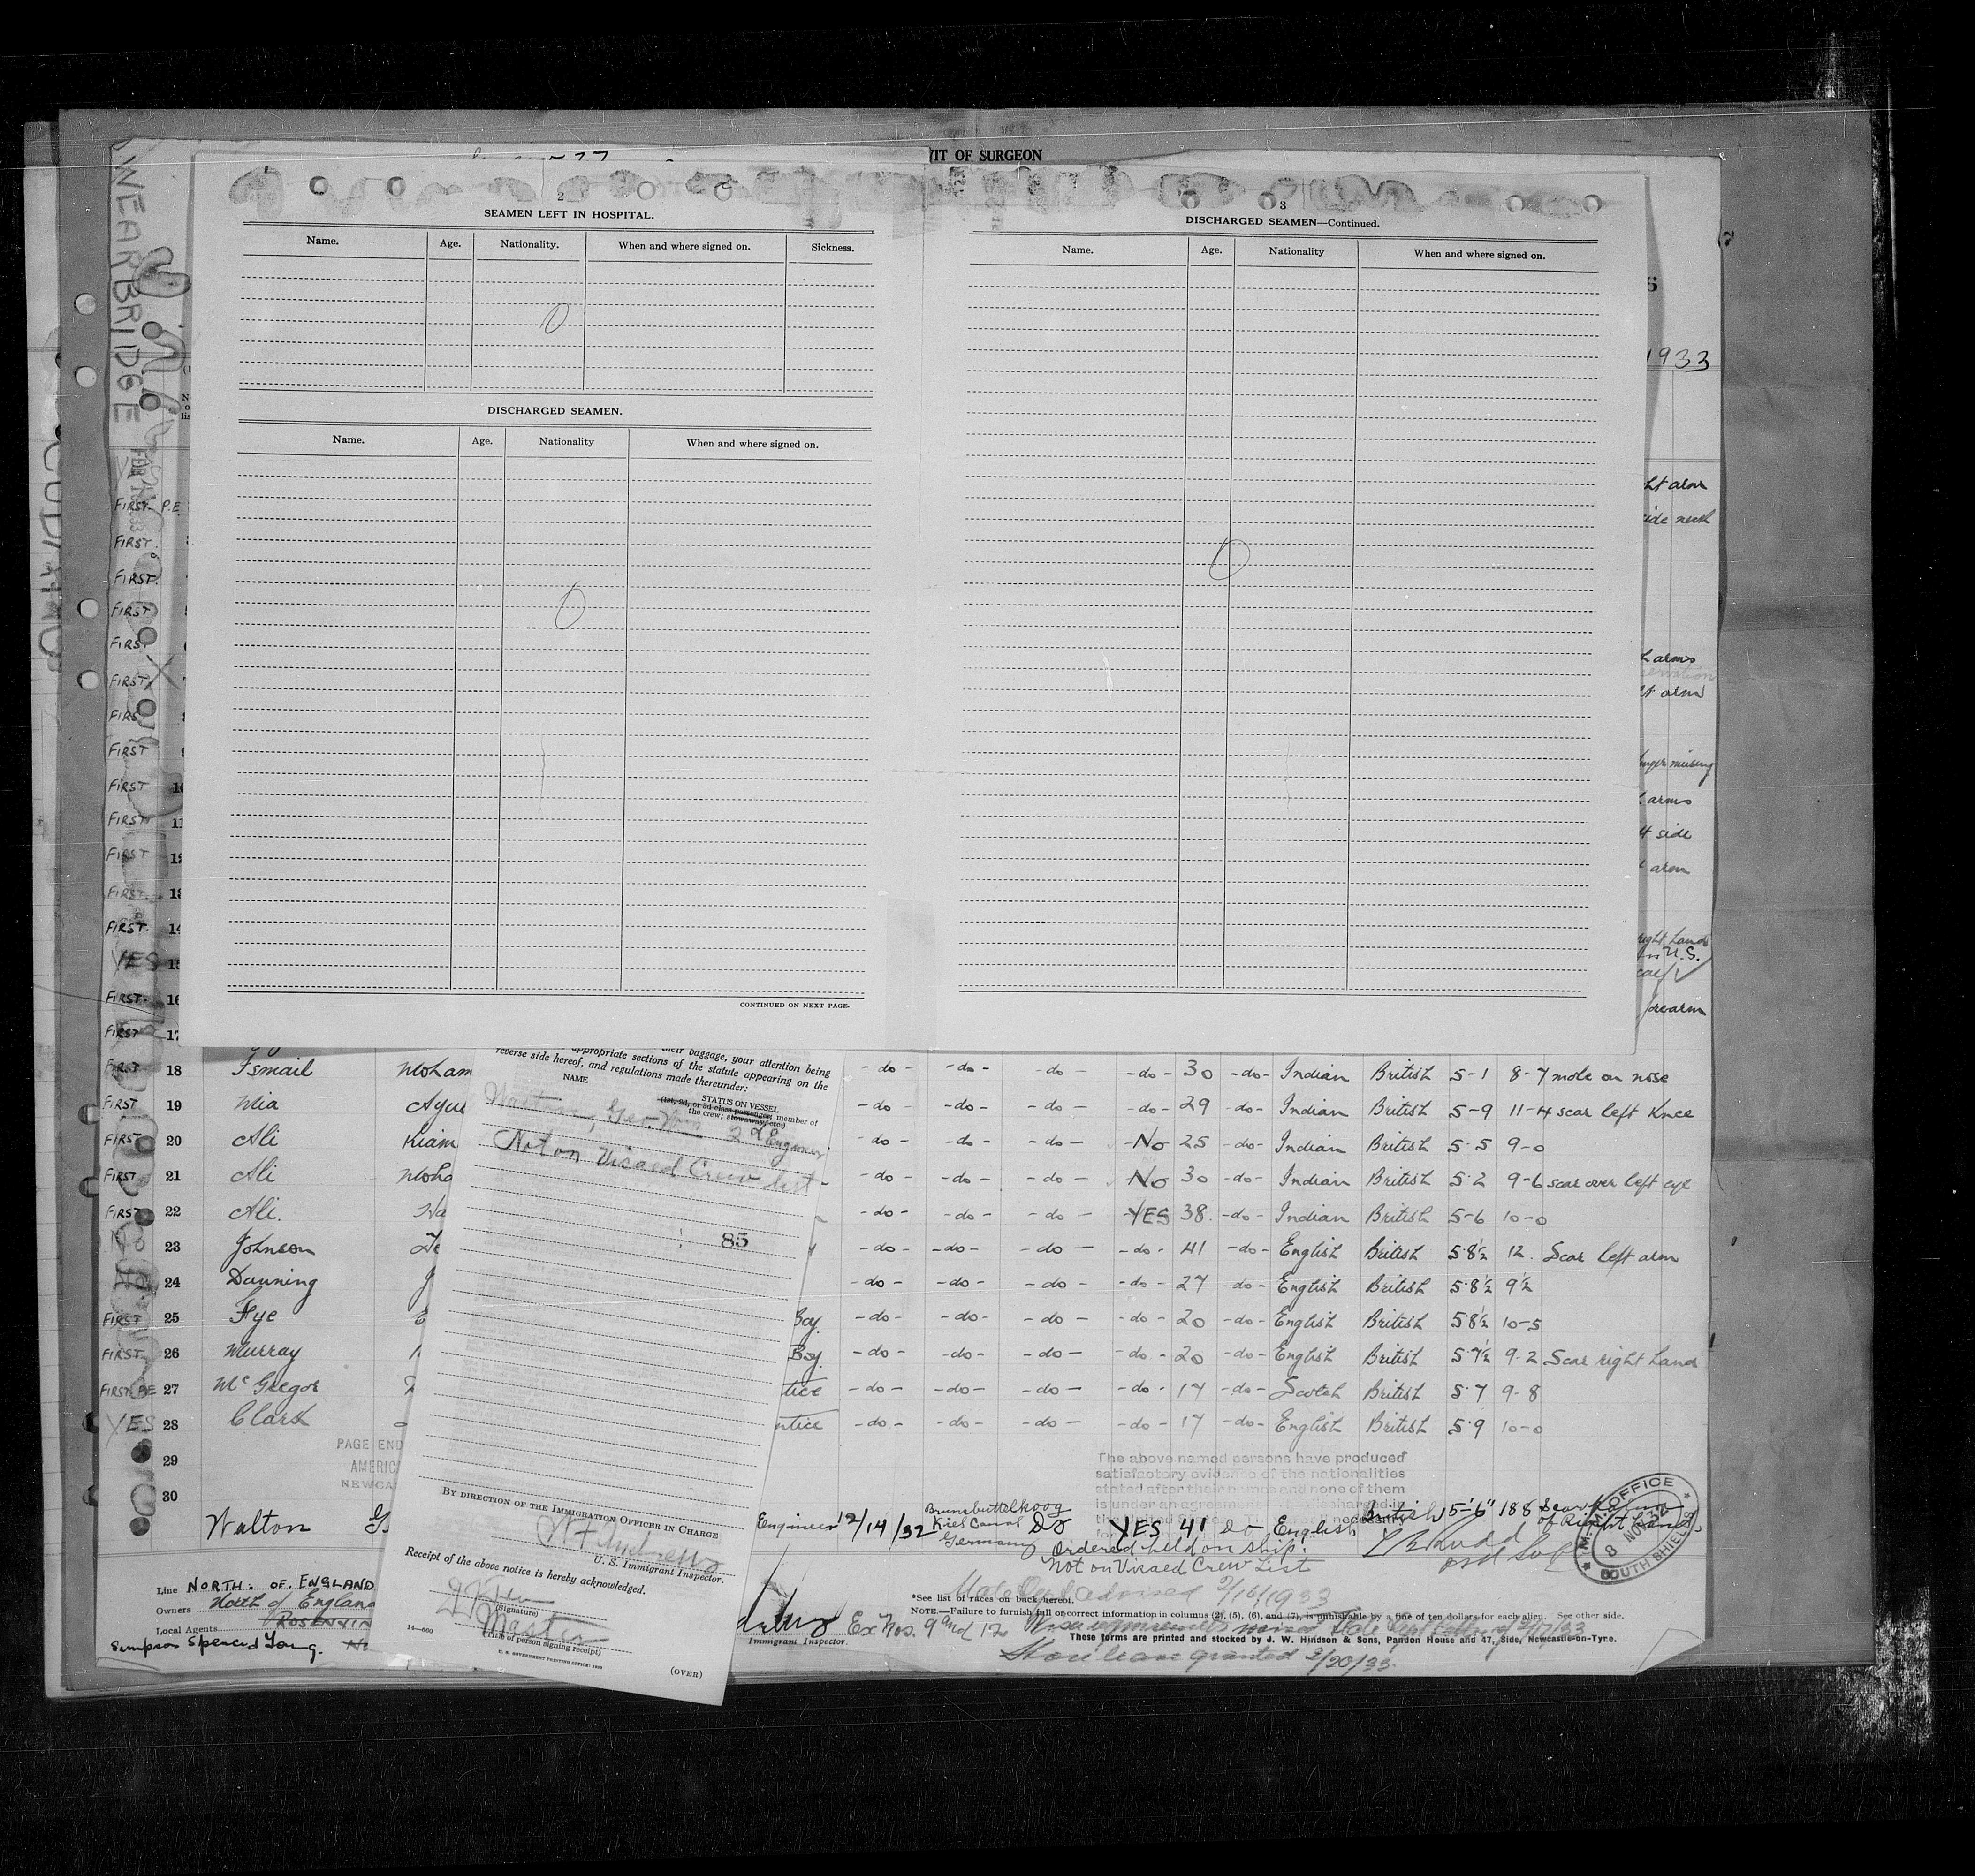 VIT OF SURGEON
WEARBRIDGE
2
SEAMEN LEFT IN HOSPITAL.
Name. Age. Nationality. When and where signed on. Sickness.
0
DISCHARGED SEAMEN.
Name. Age. Nationality When and where signed on.
0
CONTINUED ON NEXT PAGE.
3
DISCHARGED SEAMEN—Continued.
Name. Age. Nationality When and where signed on.
0
6
1933
ht arm
side neck
arms
arm
finger missing
arms
side
arm
right hand
in U.S.
forearm
FIRST P.E.
FIRST
FIRST
FIRST
FIRST
FIRST
FIRST
FIRST
FIRST 10
FIRST 11
FIRST 12
FIRST 13
FIRST 14
YES 15
FIRST 16
FIRST 17
their baggage, your attention being
appropriate sections of the statute appearing on the
reverse side hereof, and regulations made thereunder:
NAME STATUS ON VESSEL
(1st, 2d, or 3d class passenger; member of
the crew; stowaway, etc.)
Walton, Geo. Wm 2d Engineer
Not on Visaed Crew list
85
BY DIRECTION OF THE IMMIGRATION OFFICER IN CHARGE
W F Andrews
U. S. Immigrant Inspector.
Receipt of the above notice is hereby acknowledged.
(Signature)
Master
(Title of person signing receipt)
14—660
U. S. GOVERNMENT PRINTING OFFICE
(OVER)
FIRST 18 Ismail Moham - do - - do - - do - - do - 30 - do - Indian British 5-1 8-7 mole on nose
FIRST 19 Mia Ayu - do - - do - - do - - do - 29 - do - Indian British 5-9 11-4 scar left Knee
FIRST 20 Ali Kiam - do - - do - - do - No 25 - do - Indian British 5.5 9-0
FIRST 21 Ali Moha - do - - do - - do - No 30 - do - Indian British 5.2 9-6 scar over left eye
FIRST 22 Ali. - do - - do - - do - YES 38. - do - Indian British 5-6 10-0
No 23 Johnson - do - - do - - do - - do - 41 - do - English British 5.8½ 12. Scar left arm
24 Dunning - do - - do - - do - - do - 27 - do - English British 5.8½ 9½
FIRST 25 Fye Boy. - do - - do - - do - - do - 20 - do - English British 5 8½ 10-5
FIRST 26 Murray Boy. - do - - do - - do - - do - 20 - do - English British 5.7½ 9.2 Scar right hand
FIRST P.E 27 McGregor tice - do - - do - - do - - do - 17 - do - Scotch British 5.7 9-8
YES 28 Clark ntice - do - - do - - do - - do - 17 - do - English British 5.9 10-0
29
30
PAGE END
AMERIC
NEWCA
The above named persons have produced
satisfactory evidence of the nationalities
stated after their names and none of them
is under an agreement
Walton G. Engineer 12/14/32 Brunsbuttelkoog Kiel Canal Germany Do YES 41 do English British 5'-6" 188 Scar
of Right Hand.
Ordered held on ship.
Not on Visaed Crew List
M.M. OFFICE
8 NOV 32
SOUTH SHIELDS
Line NORTH: OF. ENGLAND
Owners North of England
Local Agents ROSENVIN
Simpson Spence & Young.
Immigrant Inspector.
Ex Nos. 9 and 12
*See list of races on back hereof.
advised 2/16/1933
NOTE.—Failure to furnish full or correct information in columns (2), (5), (6), and (7), is punishable by a fine of ten dollars for each alien. See other side.
These forms are printed and stocked by J. W. Hindson & Sons, Pandon House and 47, Side, Newcastle-on-Tyne.
Shore leave granted 2/20/33.